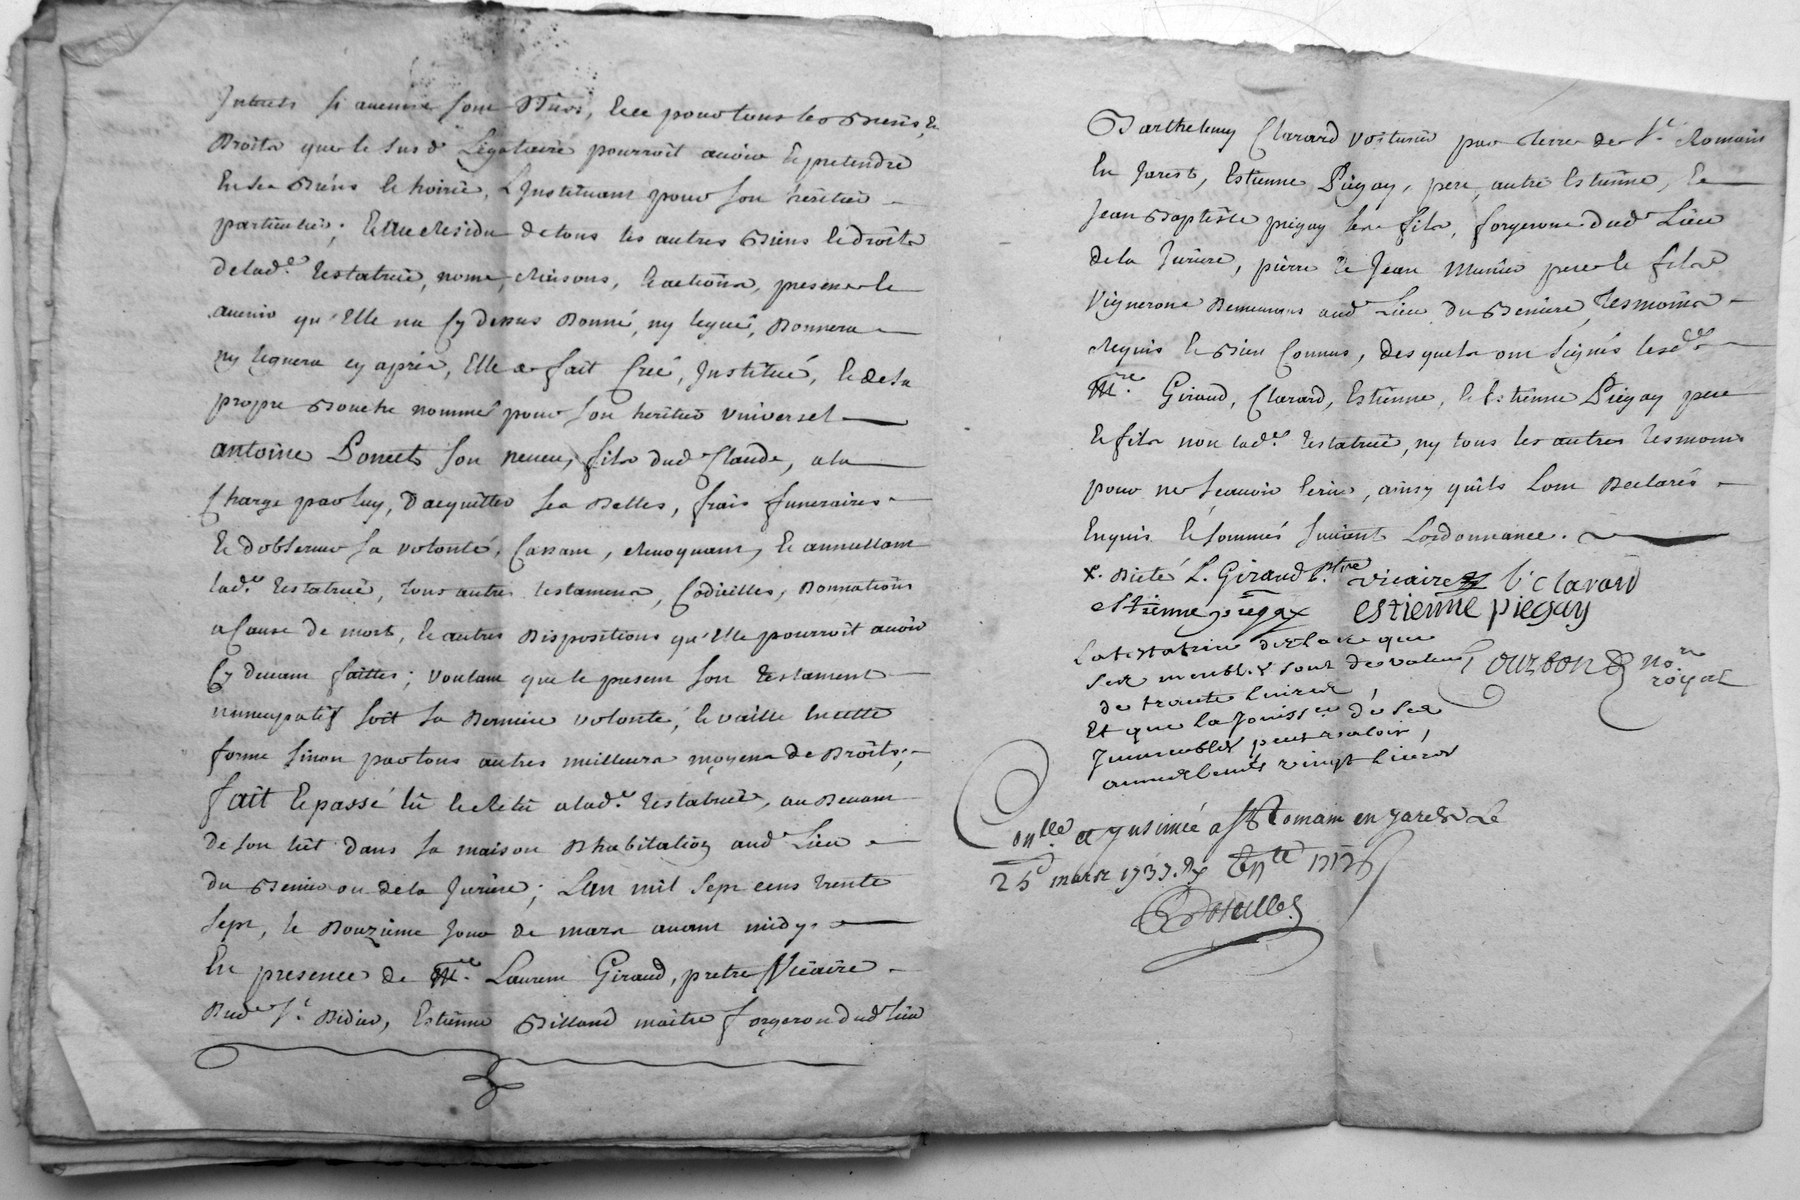 Interets si aucuns sont Deus, Et ce pour tous les Biens, Et
Droits que le susd. Legataire pourroit avoir Et pretendre
En ses Biens Et hoirie, L'Instituant pour son heritier
particulier; Et au Residu de tous les autres Biens Et droits
de lad.e Testatrice, noms, Raisons, Et actions, presens Et
avenir qu'Elle na Cy dessus Donné, ny legué, Donnera
ny leguera cy aprés, Elle a fait Creé, Institué, Et de sa
propre Bouche nommé pour son heritier universel
antoine Poncet son neveu, fils dud. Claude, a la
Charge par luy, D'acquitter ses Dettes, frais funeraires
Et d'observer sa volonté, Cassant, Revoquant, Et annullant
lad.e Testatrice, tous autres testamens, Codicilles, Donnations
a Cause de mort, Et autres Dispositions qu'Elle pourroit avoir
Cy devant faittes; voulant que le present son Testament
nuncupatif soit sa Derniere volonté, Et vaille En cette
forme sinon par tous autres meilleurs moyens de Droits;
fait Et passé lû Et Relû a lad.e Testatrice, au Devant
de son lit dans sa maison D'habitation aud. Lieu
du Benier ou de la Juriere; L'an mil sept cens trente
sept, le Douzieme Jour de mars avant midy.
En presence de M.re Laurent Giraud, pretre Vicaire
Dud. S.t Didier, Estienne Billand maitre forgeron dud. lieu
Barthelemy Clarard voiturier par terre de S.t Romain
En Jarest, Estienne Piegay, pere, autre Estienne, Et
Jean Baptiste piegay ses fils, forgerons dud. Lieu
de la Juriere, pierre Et Jean Munier pere Et fils
Vignerons Demeurans aud. Lieu du Beniere, Tesmoins
Requis Et Bien Connus, desquels ont signés lesd.
M.re Giraud, Clarard, Estienne, Et Estienne Piegay pere
Et fils non lad.e Testatrice, ny tous les autres tesmoins
pour ne sçavoir Ecrire, ainsy quils L'ont Declarés
Enquis Et sommés suivant L'ordonnance.
L. Giraud p.tre vicaire B. Clarard
estienne piegay estienne piegay
La testatrice declare que
ses meubles sont de valeur
de trente Livres,
Et que la Jouiss.ce de ses
Immeubles peut valoir,
annuellement vingt Livres
Tourbon no.re
royal
Con.lle et Insinué a St Romain en Jarest Le
25 mars 1737.